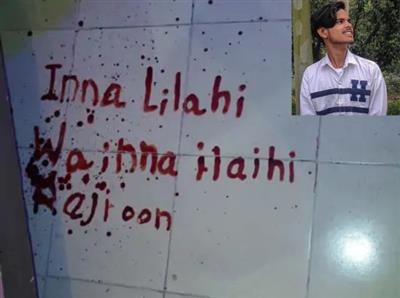 Inna Lilahi
Wa inna ilaihi
H